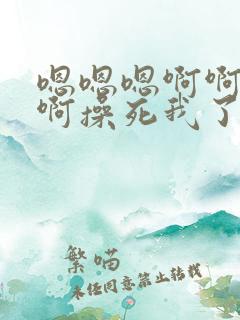 嗯嗯嗯啊啊
啊操死我了
繁喵
未经同意禁止转载